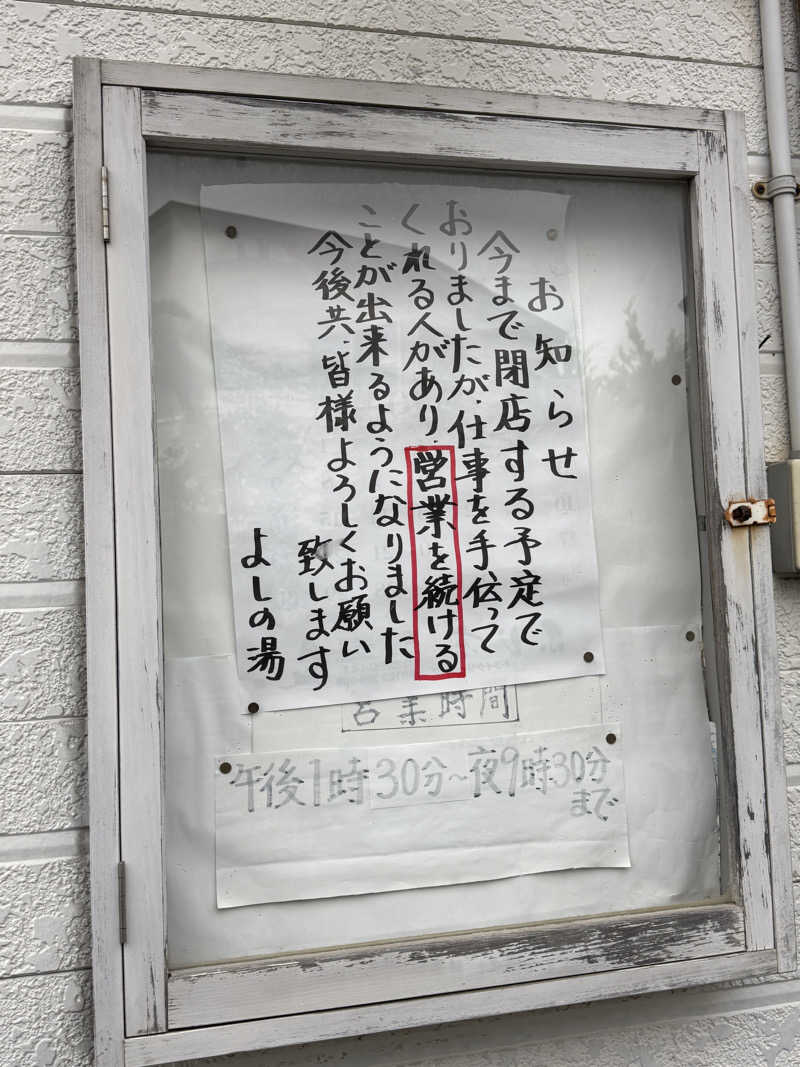 お知らせ
今まで閉店する予定で
おりましたが、仕事を手伝って
くれる人があり、営業を続ける
ことが出来るようになりました
今後共、皆様よろしくお願い
致します
よしの湯
営業時間
午後1時30分~夜9時30分
まで